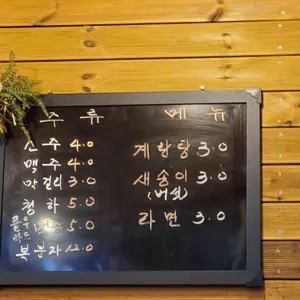 주 류
소 주 4.0
맥 주 4.0
막 걸리 3.0
청 하 5.0
클라우드 맥주 5.0
복분자 12.0
메 뉴
계란탕 3.0
새송이 3.0
(버섯)
라 면 3.0